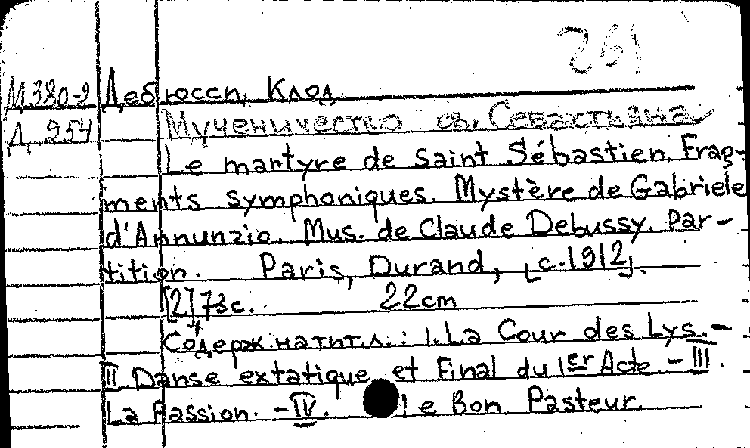 261
М380-9 Дебюсси, Клод
Д 254 Мученичество св. Севастьяна
Le martyre de Saint Sébastien. Frag-
ments symphoniques. Mystère de Gabriele
d'Annunzio. Mus. de Claude Debussy. Par-
tition. Paris, Durand, [c.1912].
[2] 73 с. 22 cm
Содерж. на тит. л.: I. La Cour des Lys. -
II Danse extatique et Final du 1er Acte - III.
La Passion. - IV. Le Bon Pasteur.